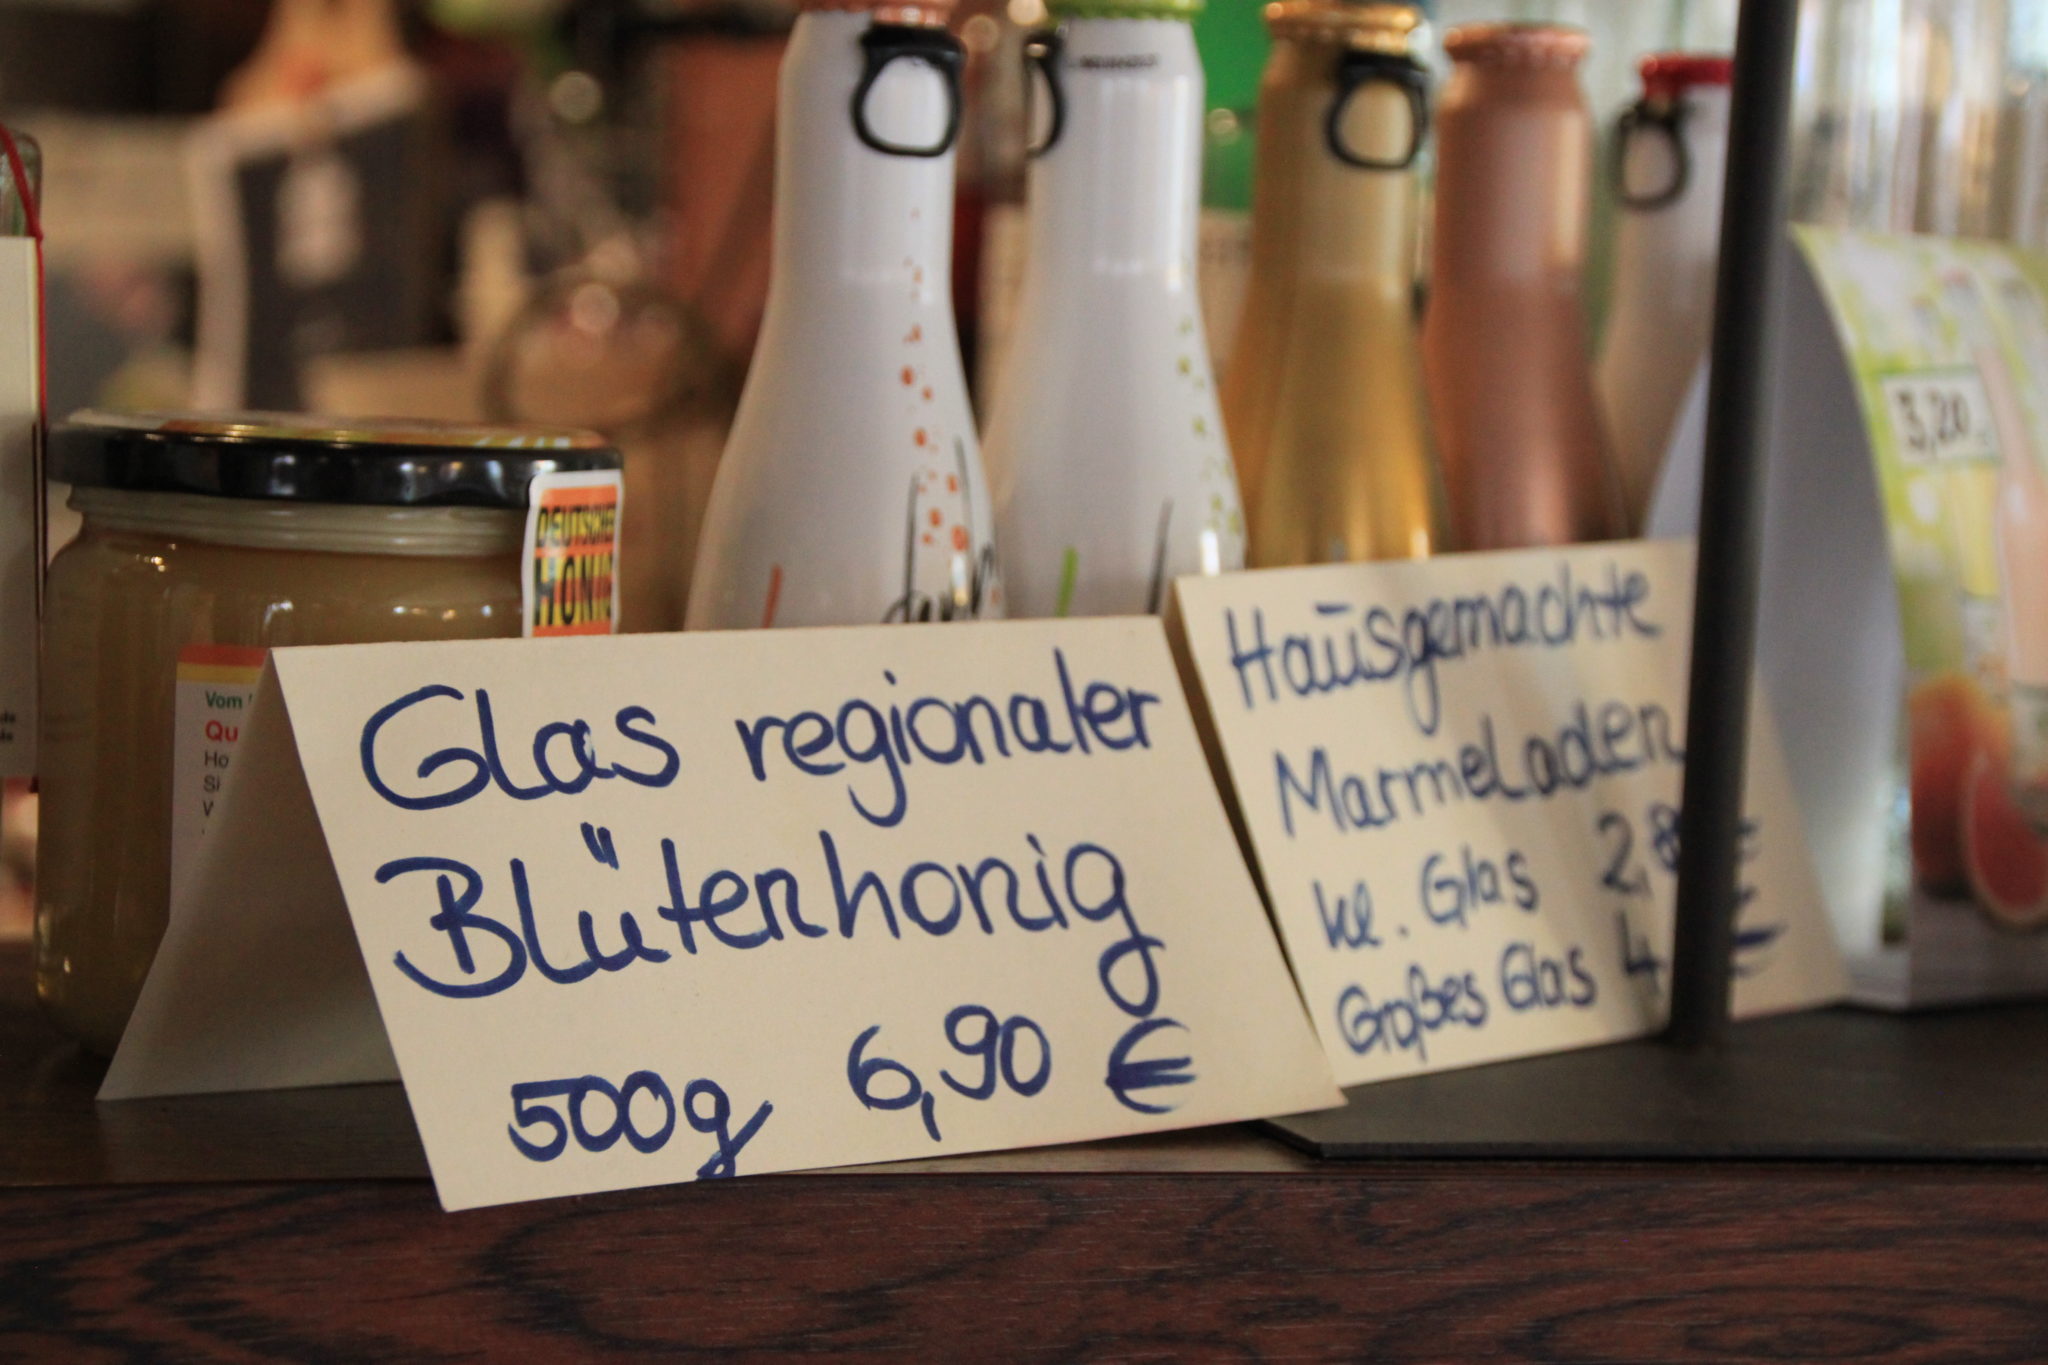 DEUTSCHER
HONIG
Vom
Qu
Ho
Si
W
Glas regionaler
Blütenhonig
500g 6,90 €
Hausgemachte
Marmeladen
kl. Glas 2,8
Großes Glas 4
3,20